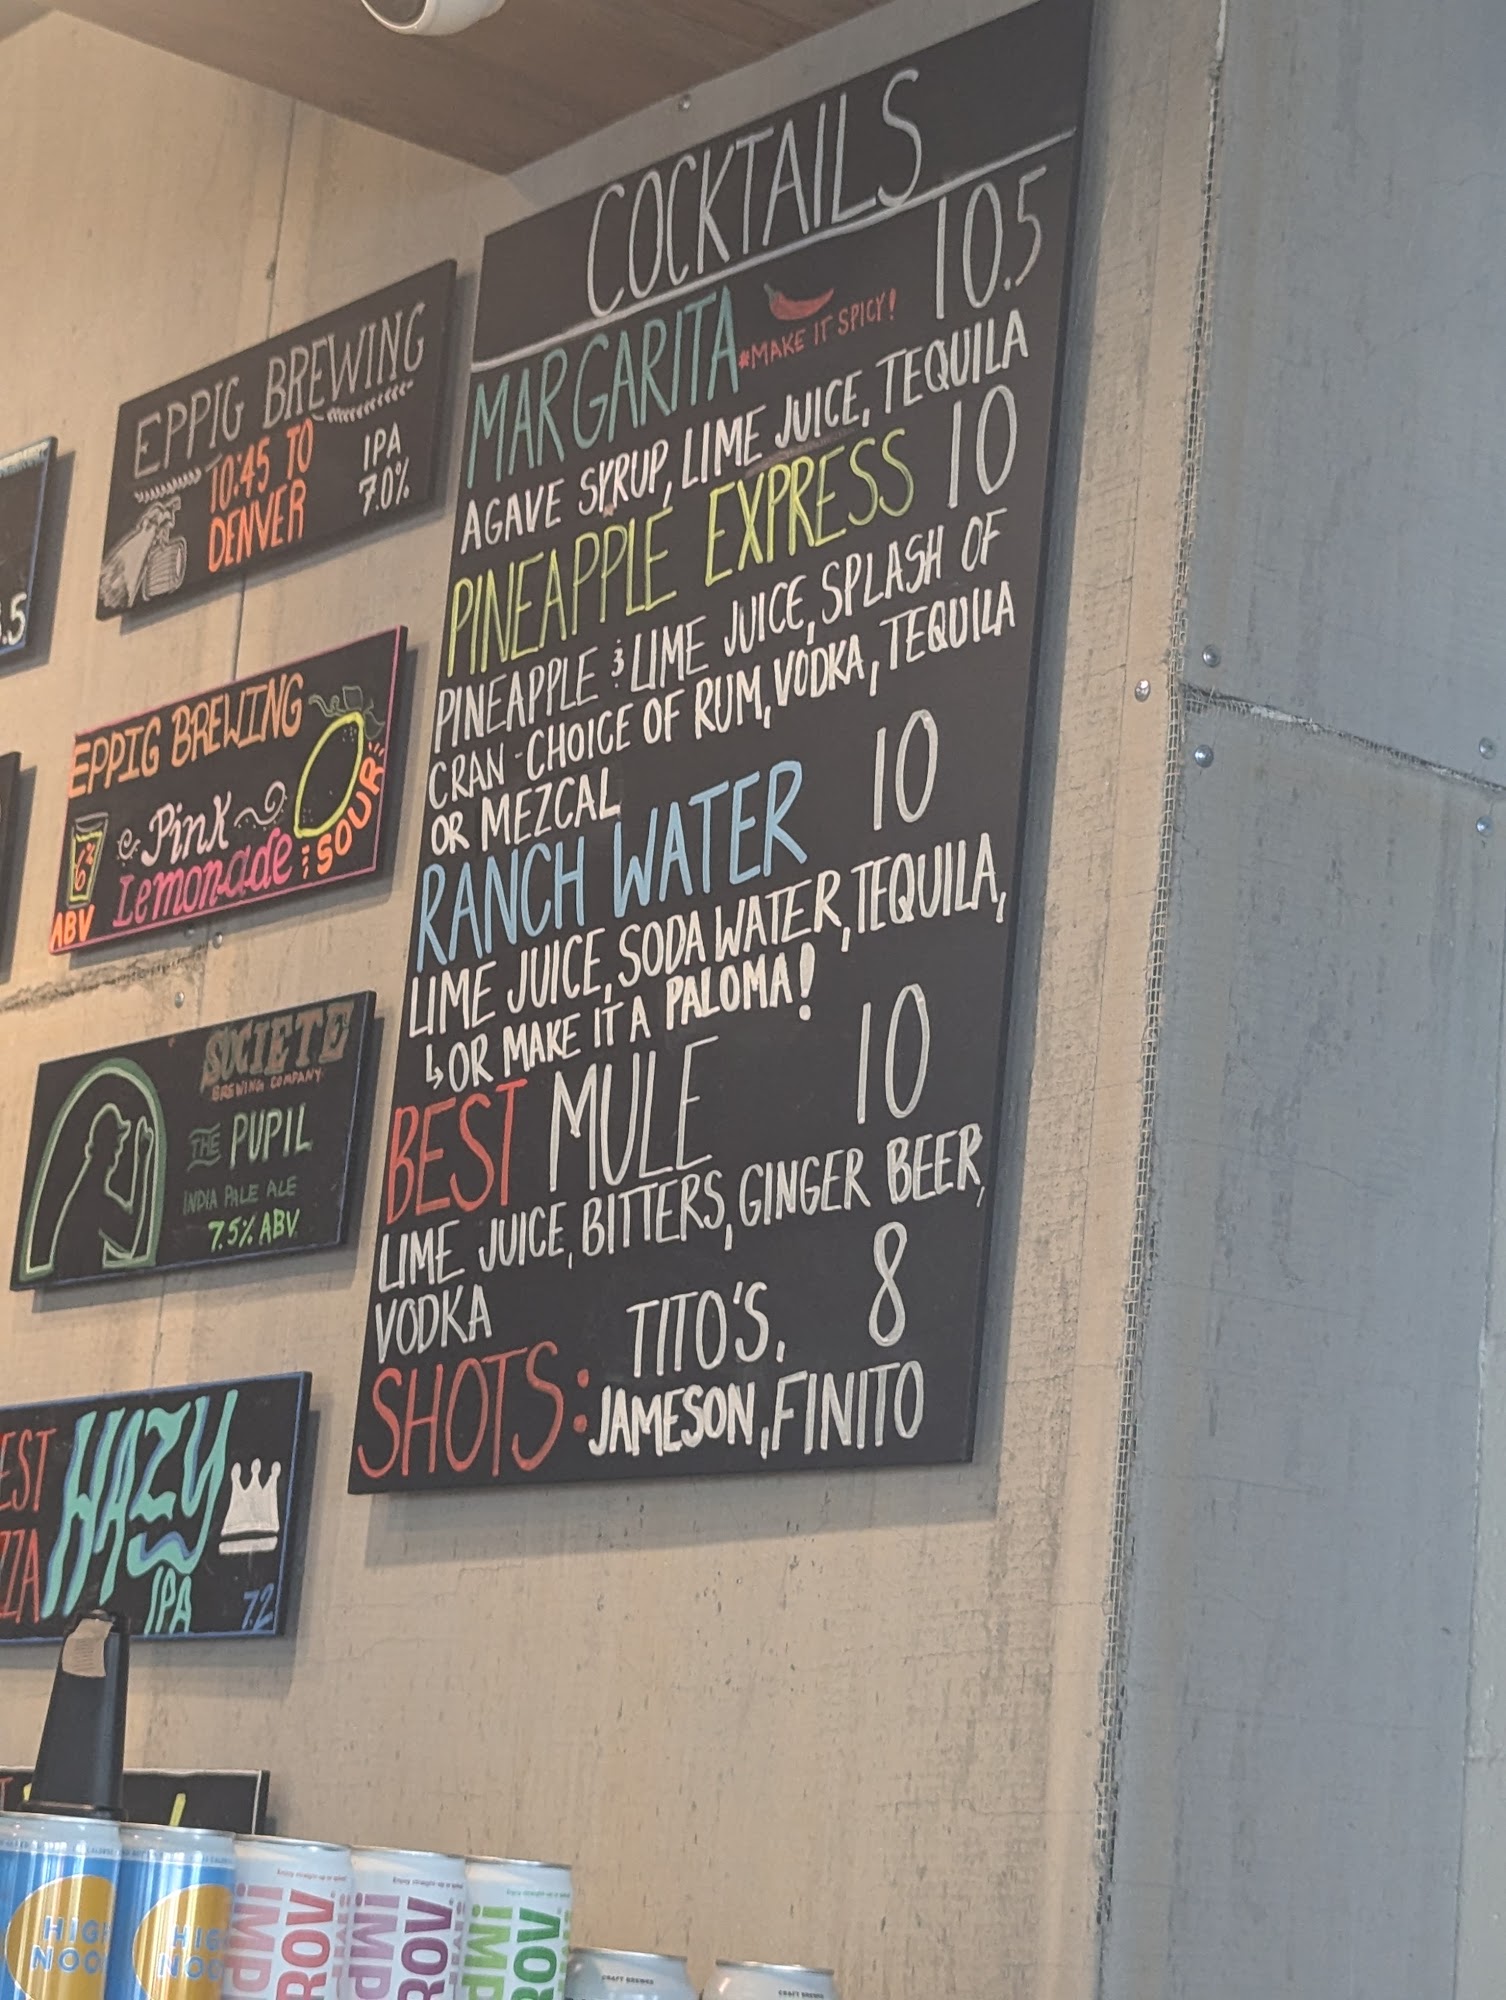 COCKTAILS
MARGARITA *MAKE IT SPICY! 10.5
AGAVE SYRUP, LIME JUICE, TEQUILA
PINEAPPLE EXPRESS 10
PINEAPPLE & LIME JUICE, SPLASH OF
CRAN - CHOICE OF RUM, VODKA, TEQUILA
OR MEZCAL
RANCH WATER 10
LIME JUICE, SODA WATER, TEQUILA,
↳ OR MAKE IT A PALOMA!
BEST MULE 10
LIME JUICE, BITTERS, GINGER BEER,
VODKA
SHOTS: TITO'S, 8
JAMESON, FINITO
EPPIG BREWING
10:45 TO
DENVER
IPA
7.0%
.5
EPPIG BREWING
Pink
Lemonade
SOUR
6%
ABV
SOCIETE
BREWING COMPANY
THE PUPIL
INDIA PALE ALE
7.5% ABV.
EST
ZZA
HAZY
IPA
7.2
HIGH
NOO
HIG
NOO
ROV
ROV
ROV
CRAFT BREWED
CRAFT BREWED